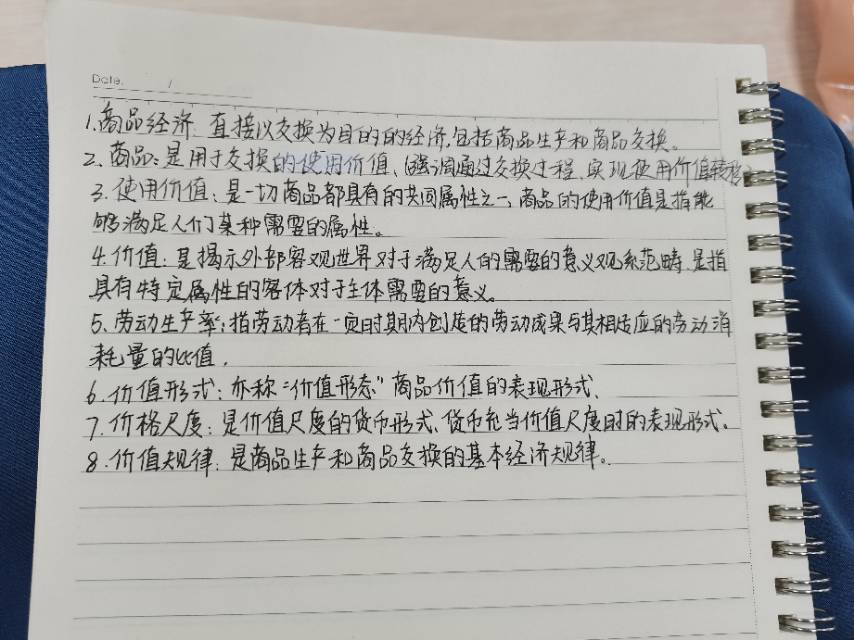 Date. /
1.商品经济:直接以交换为目的的经济,包括商品生产和商品交换。
2、商品:是用于交换的使用价值、(强调通过交换过程、实现使用价值转移)
3.使用价值:是一切商品都具有的共同属性之一、商品的使用价值是指能
够满足人们某种需要的属性。
4.价值:是揭示外部客观世界对于满足人的需要的意义观系范畴.是指
具有特定属性的客体对于主体需要的意义。
5、劳动生产率:指劳动者在一定时期内创造的劳动成果与其相适应的劳动消
耗量的比值.
6.价值形式:亦称"价值形态"商品价值的表现形式.
7.价格尺度:是价值尺度的货币形式、货币充当价值尺度时的表现形式.
8.价值规律:是商品生产和商品交换的基本经济规律。